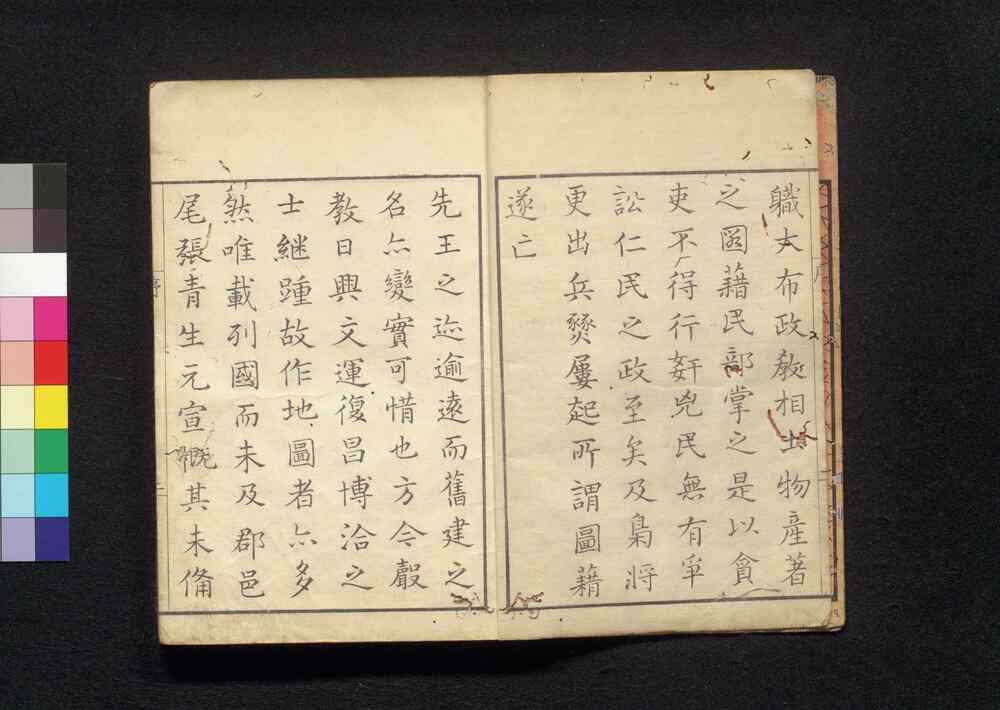 職大布政教相土物産著
之圖藉民部掌之是以貪
吏不得行奸兇民無有爭
訟仁民之政至矣及梟将
更出兵燹屢起所謂圖藉
遂亡
先王之迹逾遠而舊建之
名亦變實可惜也方今聲
教日興文運復昌博洽之
士継踵故作地圖者亦多
然唯載列國而未及郡邑
尾張青生元宣慨其未備
序